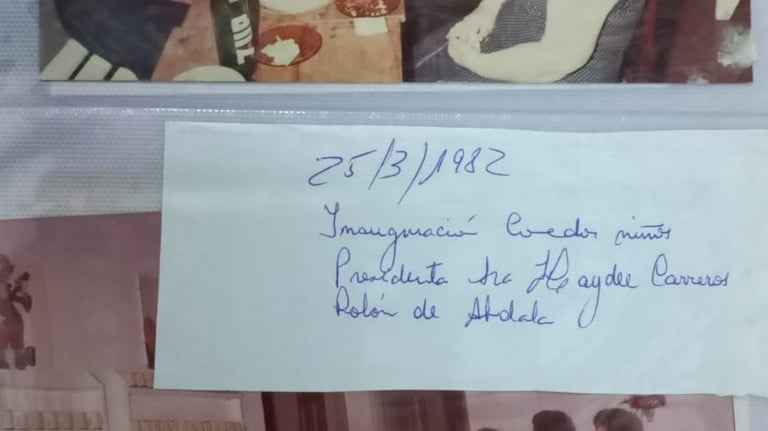 25/3/1982
Inauguración Comedor niños
Presidenta Sra Haydee Carreros
Rolón de Abdala